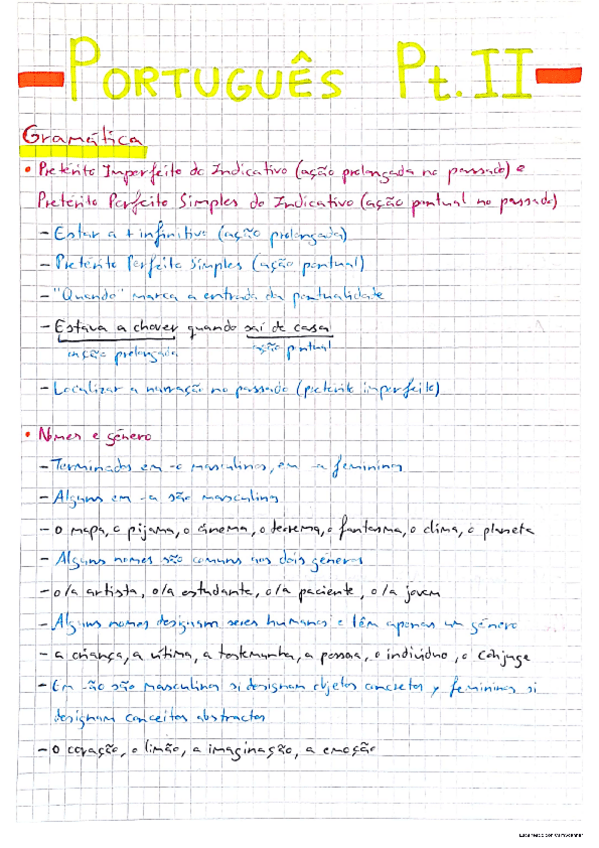 PORTUGUÊS Pt. II
Gramática
• Pretérito Imperfeito do Indicativo (ação prolongada no passado) e
Pretérito Perfeito Simples do Indicativo (ação pontual no passado)
- Estar a + infinitivo (ação prolongada)
- Pretérito Perfeito Simples (ação pontual)
- "Quando" marca a entrada da pontualidade
- Estava a chover quando saí de casa
ação prolongada ação pontual
- Localizar a narração no passado (pretérito imperfeito)
• Nomes e género
- Terminados em -o masculinos, em -a femininos
- Alguns em -a são masculinos
- o mapa, o pijama, o cinema, o teorema, o fantasma, o clima, o planeta
- Alguns nomes são comuns aos dois géneros
- o/a artista, o/a estudante, o/a paciente, o/a jovem
- Alguns nomes designam seres humanos e têm apenas um género
- a criança, a vítima, a testemunha, a pessoa, o indivíduo, o cônjuge
- Em -ão são masculinos si designam objetos concretos y femininos si
designam conceitos abstractos
- o coração, o limão, a imaginação, a emoção